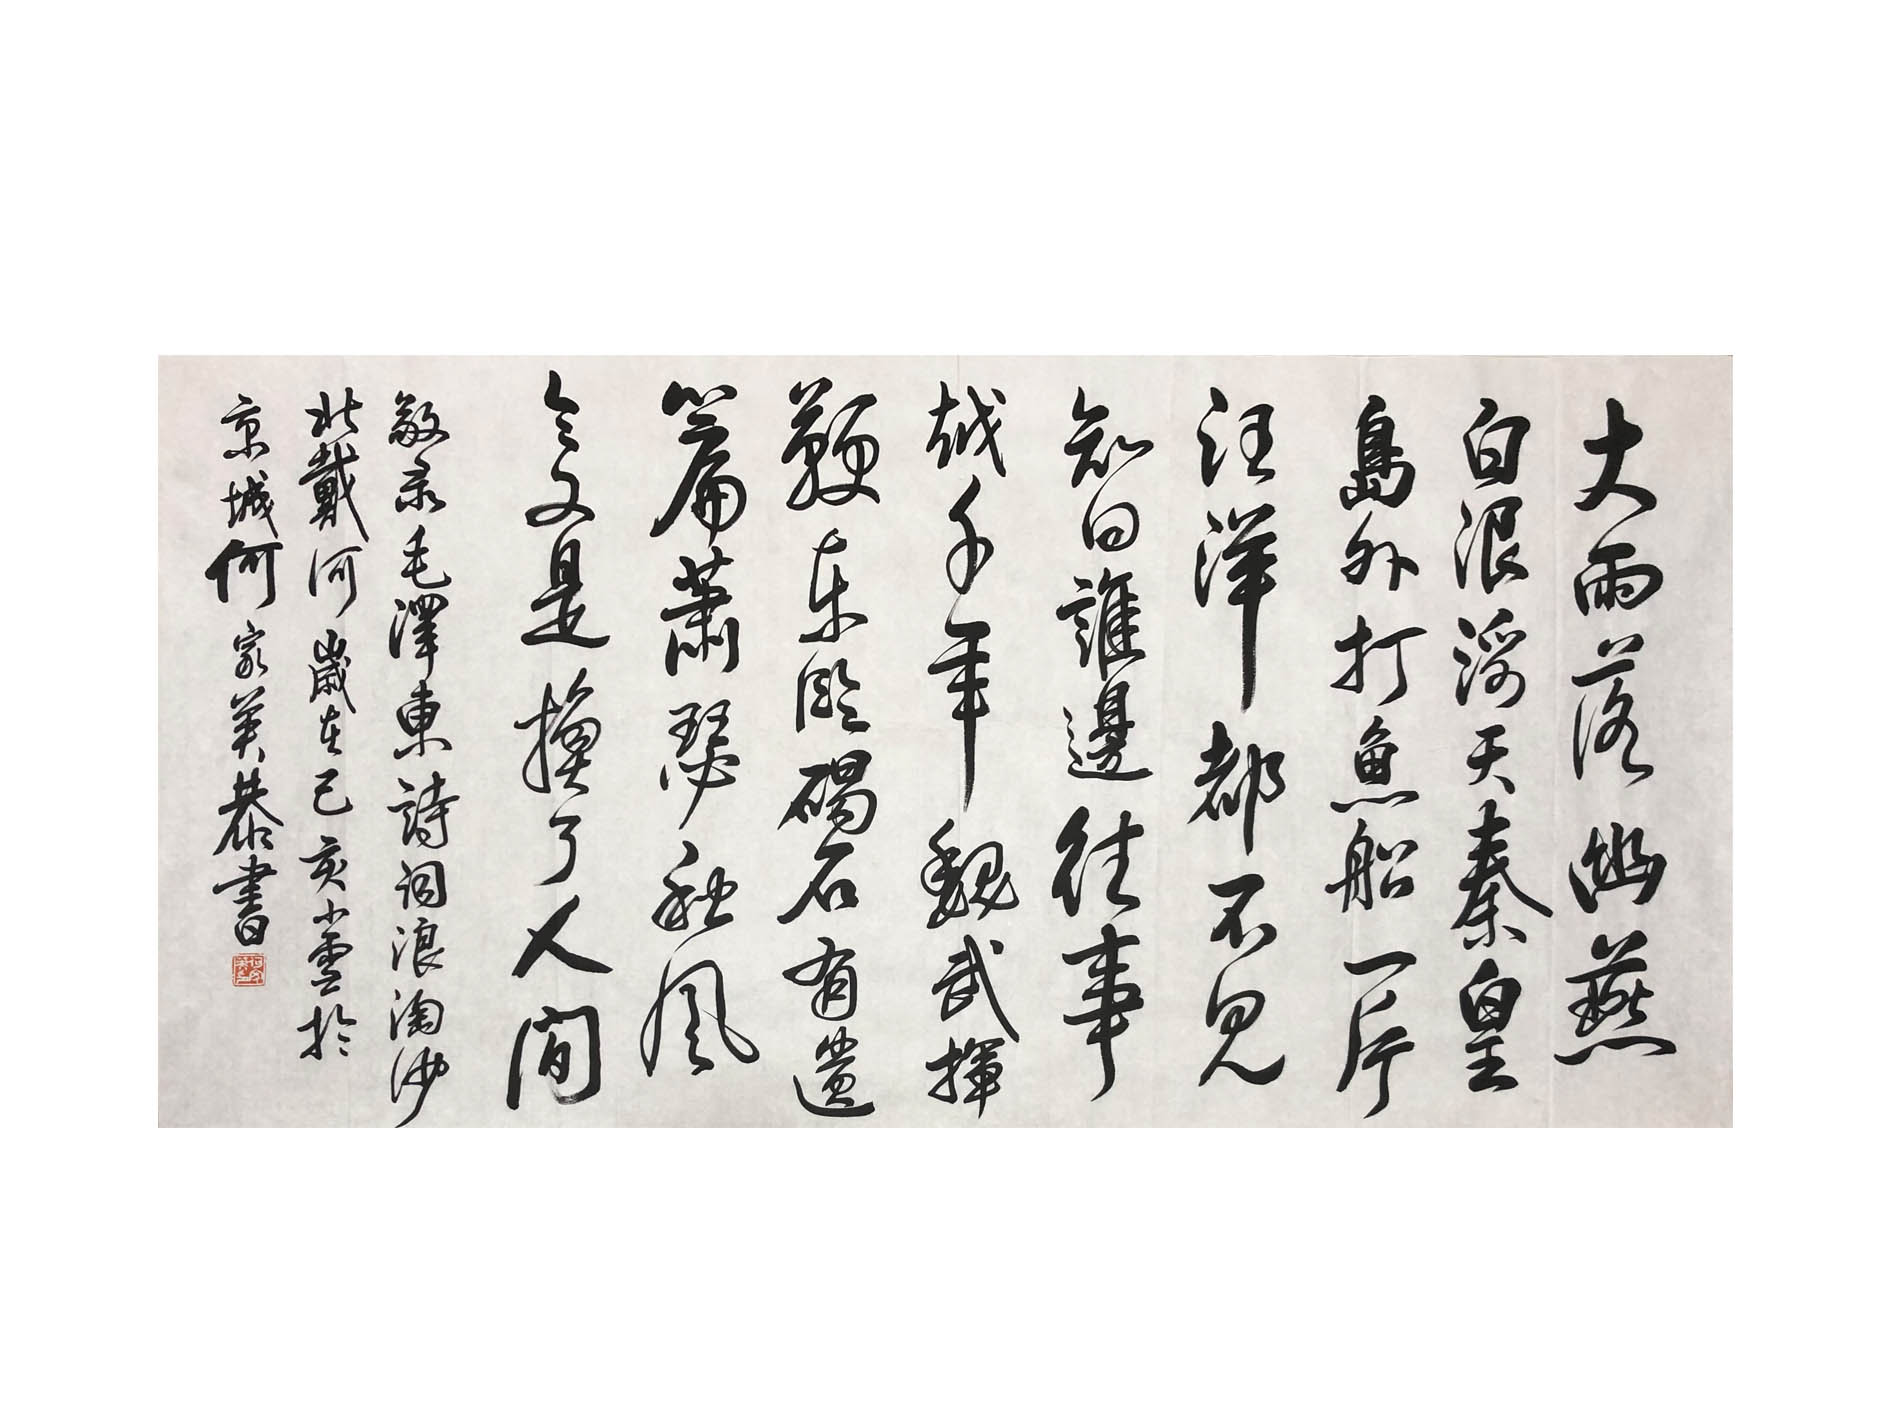 大雨落幽燕
白浪滔天秦皇
島外打魚船一片
汪洋都不見
知向誰邊往事
越千年魏武揮
鞭東臨碣石有遺
篇蕭瑟秋風
今又是換了人間
敬录毛澤東詩詞浪淘沙
北戴河歲在己亥小雪於
京城何家美恭書